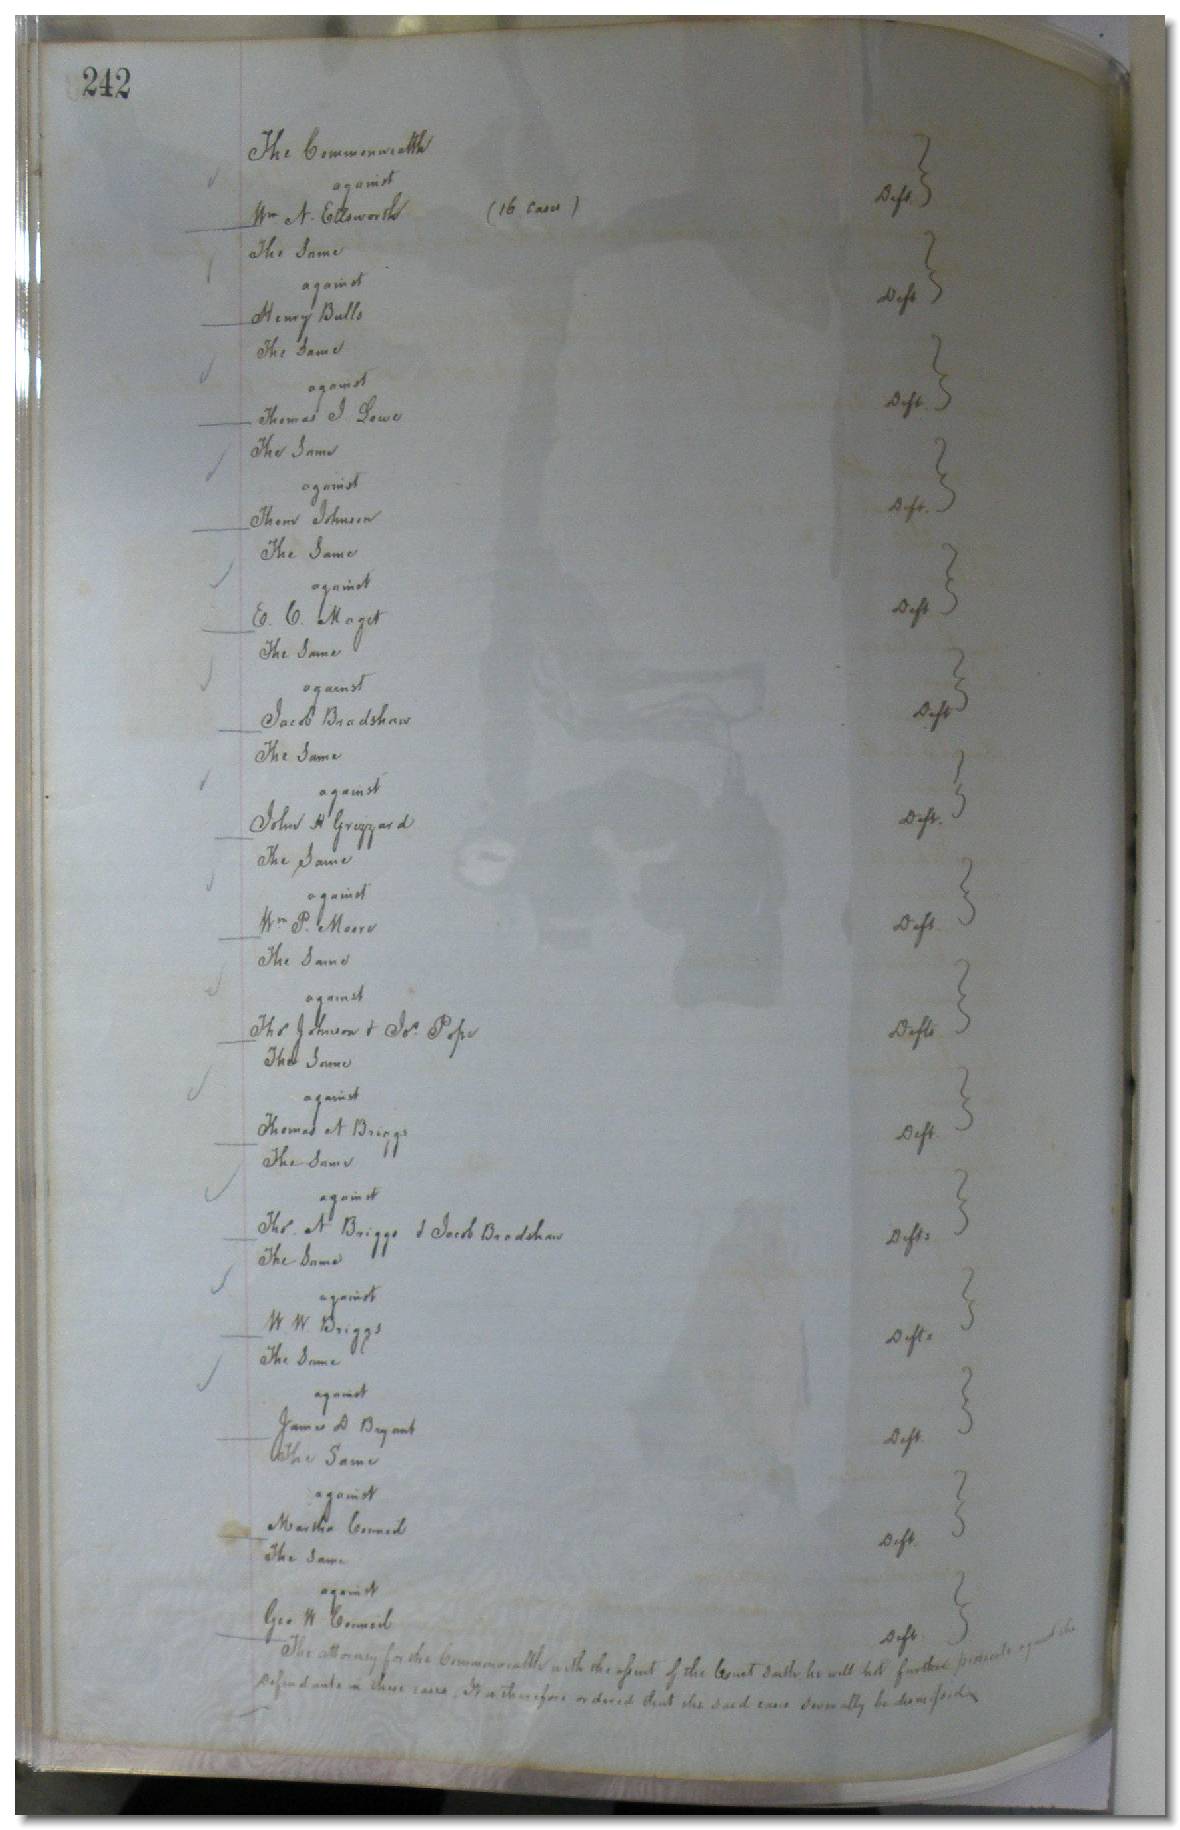 242
The Commonwealth
against
Wm N. Ellsworth (16 cases) Deft.
The Same
against
Henry Bulls Deft
The Same
against
Thomas J. Lowe Deft.
The Same
against
Thom Johnson Deft.
The Same
against
E. C. Maget Deft
The Same
against
Jacob Bradshaw Deft
The Same
against
John H Grizzard Deft.
The Same
against
Wm P. Moore Deft.
The Same
against
Thos Johnson & Jos. Pope Defts
The Same
against
Thomas N Briggs Deft
The Same
against
Thos. N Briggs & Jacob Bradshaw Defts
The Same
against
W. W. Briggs Defts
The Same
against
James D Bryant Deft.
The Same
against
Martha Council Deft.
The Same
against
Geo W Council Deft.
The attorney for the Commonwealth with the assent of the Court saith he will not further prosecute against the
Defendants in these cases. It is therefore ordered that the said cases severally be dismissed.